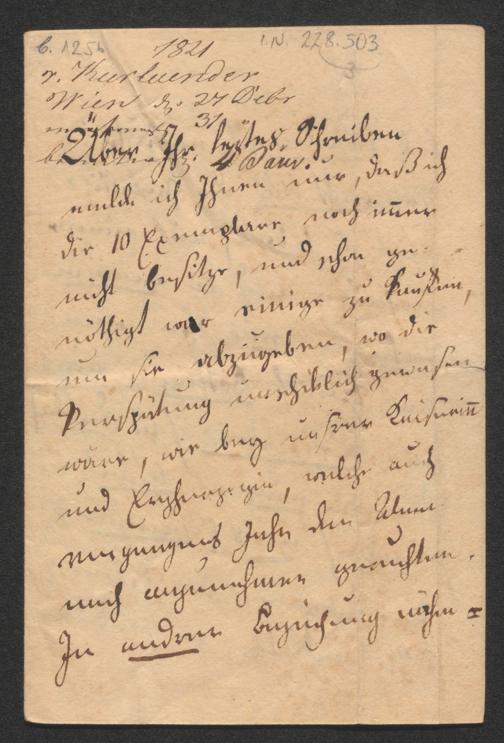 b. 1256 I.N. 228.503
1821
v. Kurlaender
Wien d. 27 Debr
31
4 Janr.
Über Ihr letztes Schreiben
melde ich Ihnen nur, daß ich
die 10 Exemplare noch im̅er
nicht besitze, und schon ge-
nöthigt war einige zu kaufen,
um sie abzugeben, wo die
Verspätung unschicklich gewesen
wäre, wie bey unsrer Kaiserin̅
und Erzherzogin, welche auch
vergangnes Jahr den Almen
nach anzunehmen geruhten.
In andrer Beziehung nähm